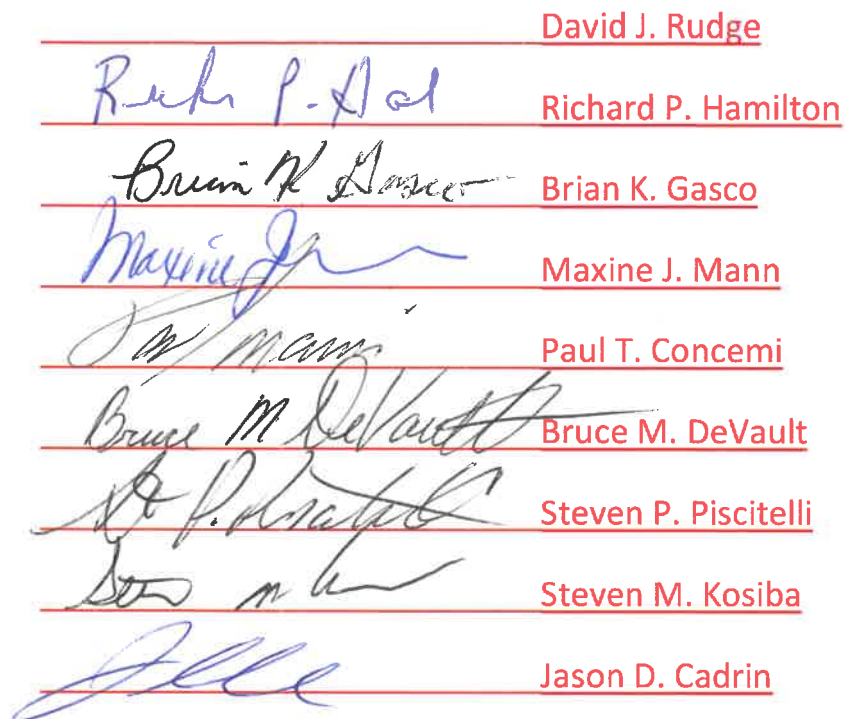 David J. Rudge
Richard P. Hamilton
Brian K Gasco Brian K. Gasco
Maxine J Maxine J. Mann
Paul T. Concemi
Bruce M DeVault Bruce M. DeVault
Steven P. Piscitelli
Steven M. Kosiba
Jason D. Cadrin